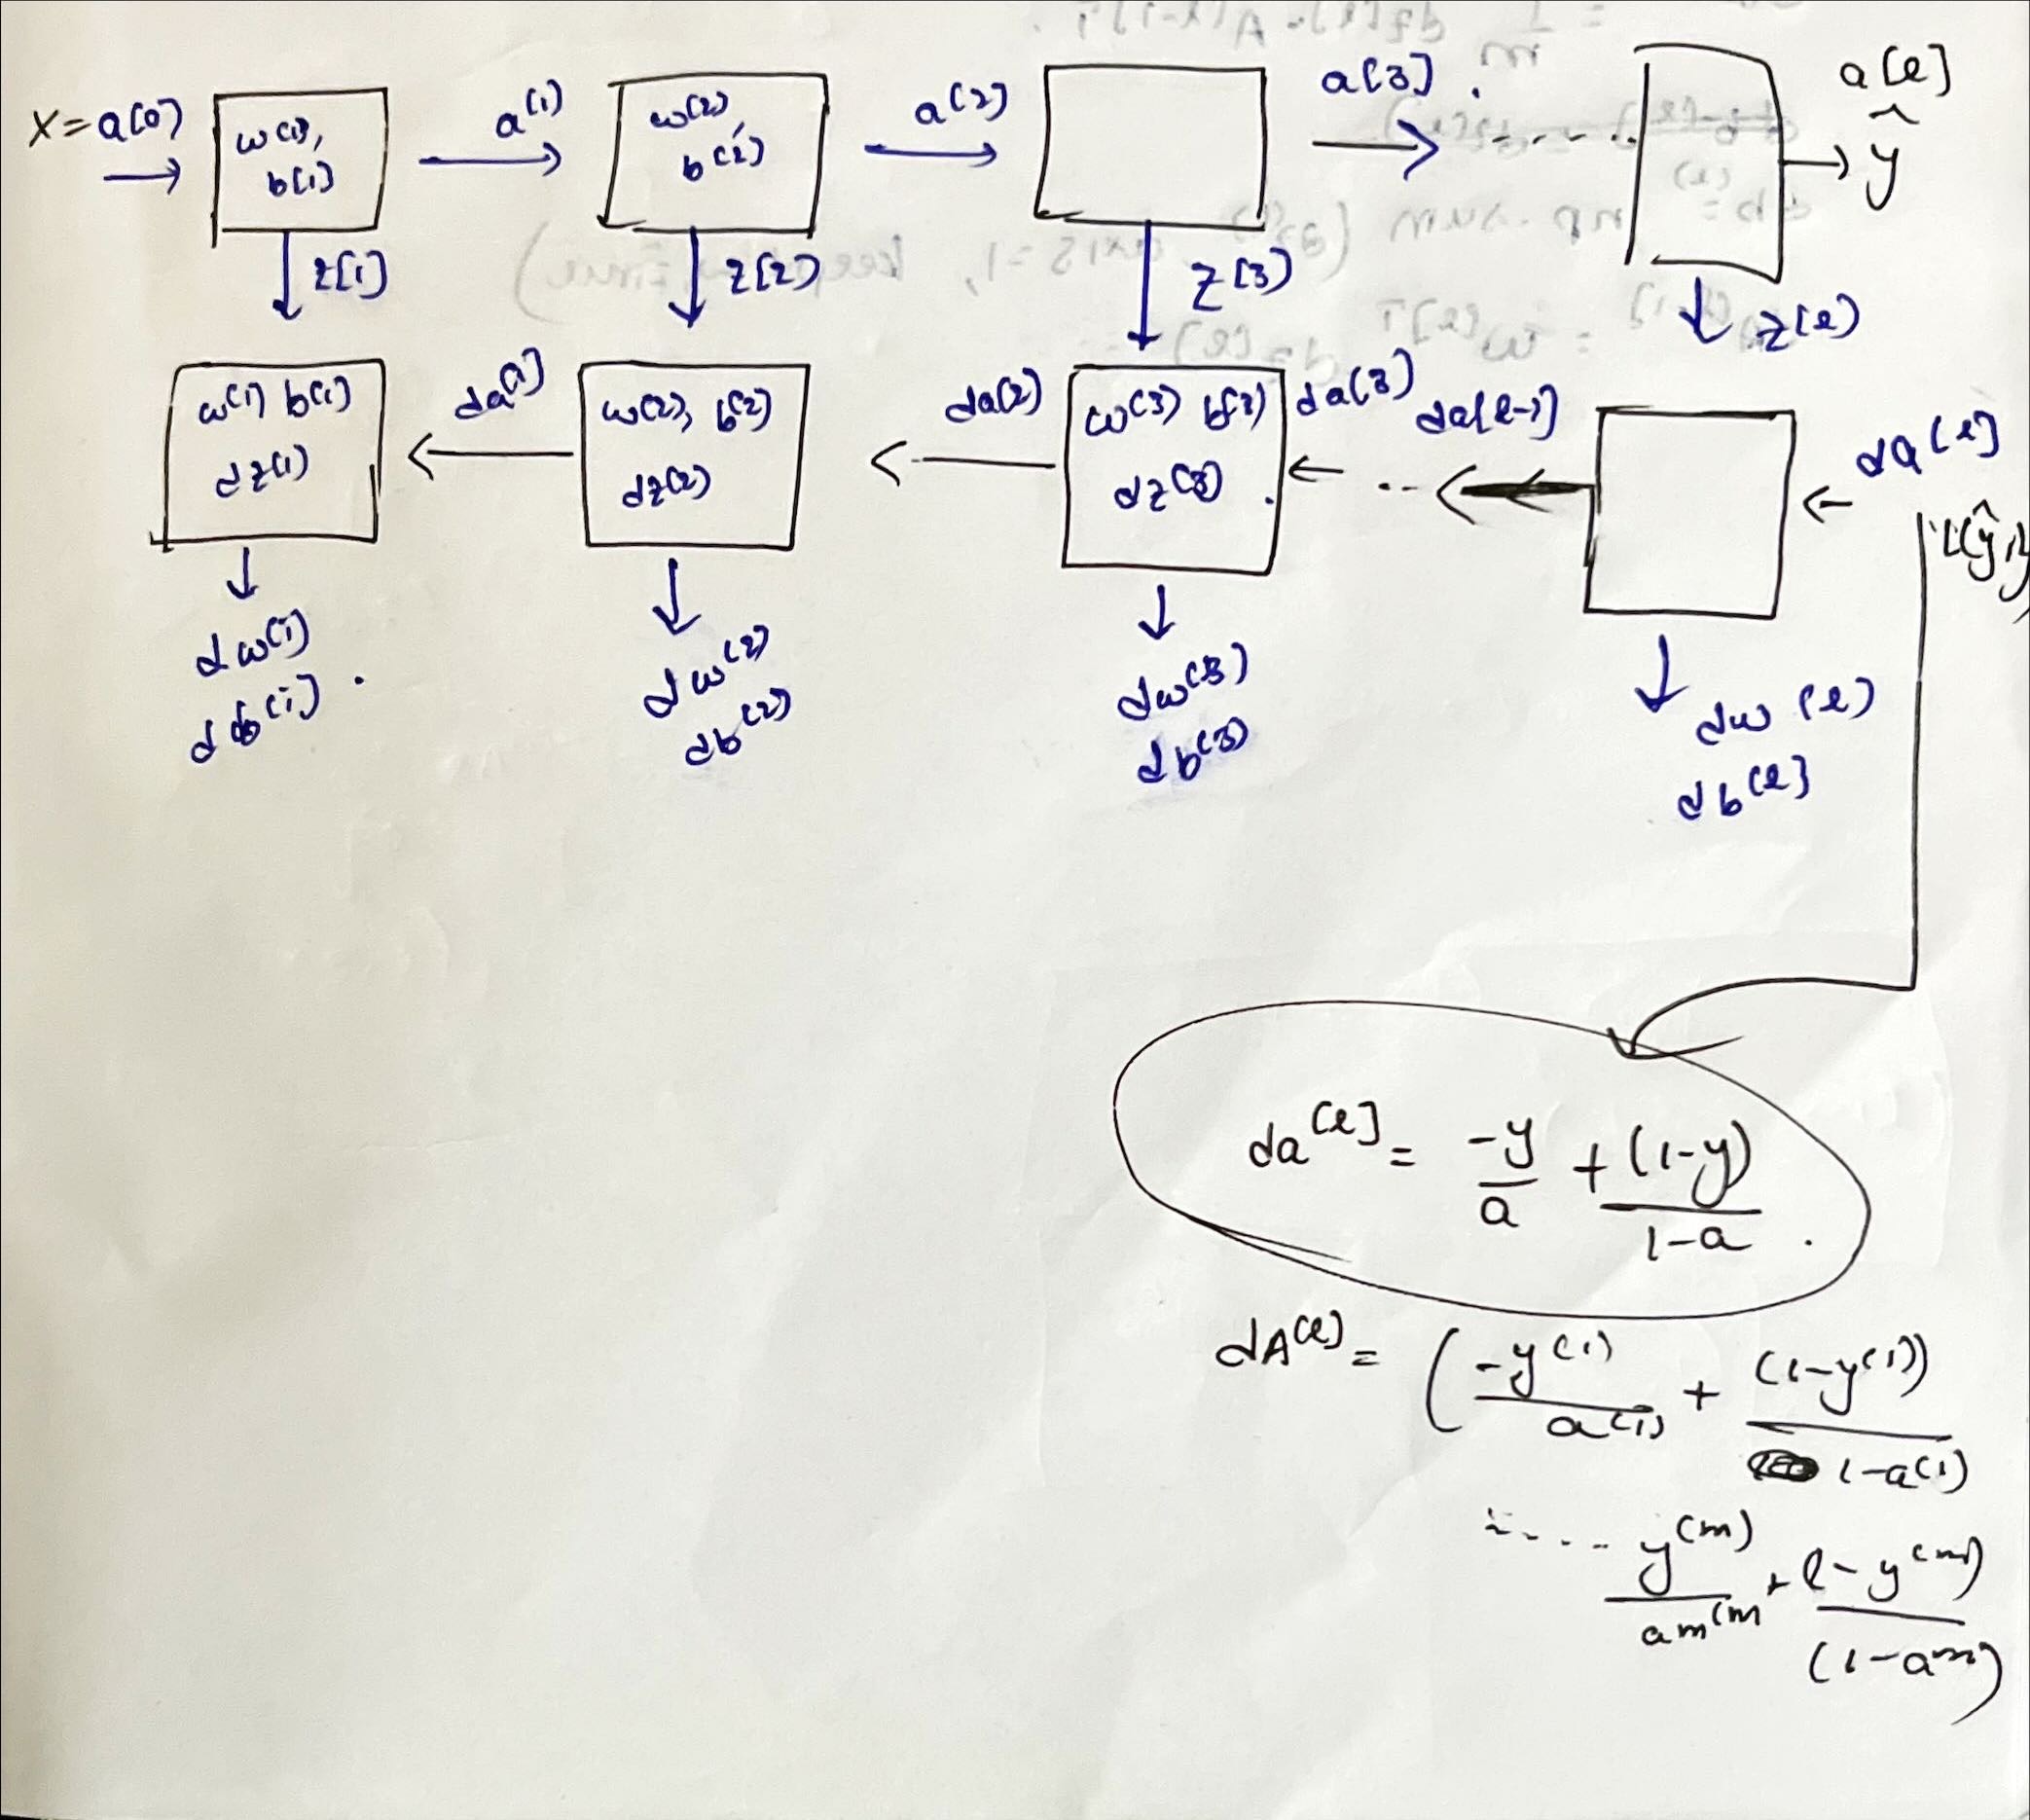 X = a[0]
w[1], b[1]
a[1]
w[2], b[2]
a[2]
a[3] . ....
a[l]
ŷ
z[1]
z[2]
z[3]
z[l]
w[1] b[1]
dz[1]
da[1]
w[2], b[2]
dz[2]
da[2]
w[3] b[3]
dz[3]
da[3]
da[l-1]
da[l]
dw[1]
db[1] .
dw[2]
db[2]
dw[3]
db[3]
dw[l]
db[l]
da[l] = -y/a + (1-y)/1-a .
dA[l] = (-y(1)/a(1) + (1-y(1))/1-a(1)
.... y(m)/am(m + 1-y(m)/(1-am)